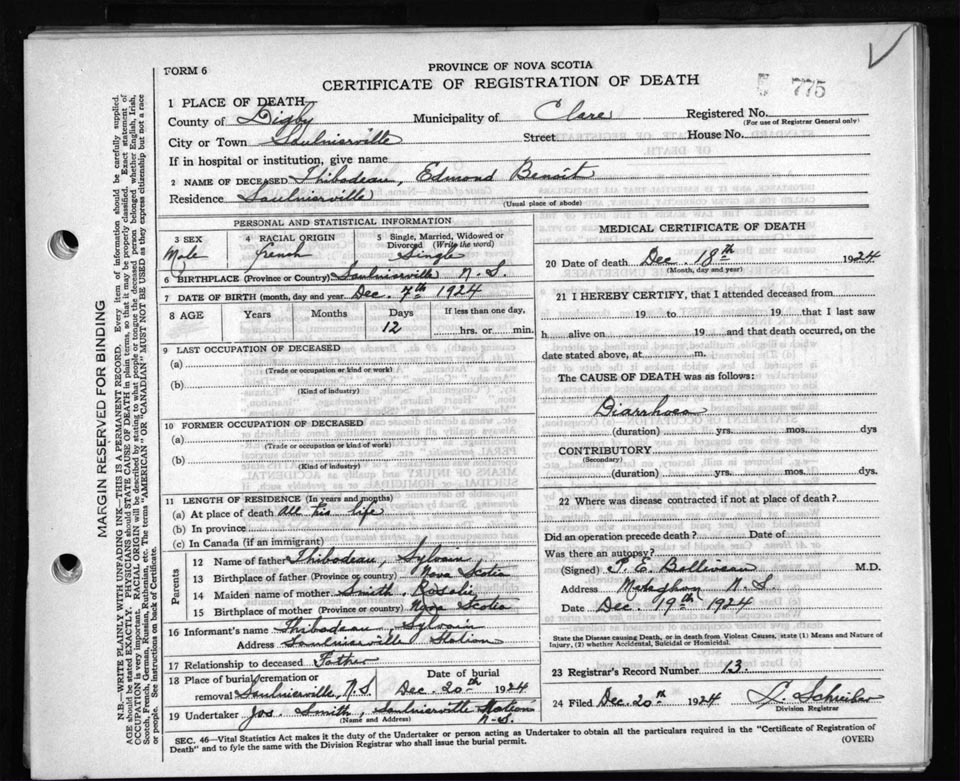 FORM 6
PROVINCE OF NOVA SCOTIA
CERTIFICATE OF REGISTRATION OF DEATH
775
1 PLACE OF DEATH
County of Digby Municipality of Clare Registered No.
(For use of Registrar General only)
City or Town Saulnierville Street House No.
If in hospital or institution, give name
2 NAME OF DECEASED Thibodeau, Edmond Benoit
Residence Saulnierville
(Usual place of abode)
PERSONAL AND STATISTICAL INFORMATION
3 SEX 4 RACIAL ORIGIN 5 Single, Married, Widowed or Divorced (Write the word)
Male French Single
6 BIRTHPLACE (Province or Country) Saulnierville N.S.
7 DATE OF BIRTH (month, day and year) Dec. 7th 1924
8 AGE Years Months Days If less than one day,
12 hrs. or min.
9 LAST OCCUPATION OF DECEASED
(a)
(Trade or occupation or kind or work)
(b)
(Kind of industry)
10 FORMER OCCUPATION OF DECEASED
(a)
(Trade or occupation or kind of work)
(b)
(Kind of industry)
11 LENGTH OF RESIDENCE (In years and months)
(a) At place of death All his life
(b) In province
(c) In Canada (if an immigrant)
Parents
12 Name of father Thibodeau, Sylvain
13 Birthplace of father (Province or country) Nova Scotia
14 Maiden name of mother Smith, Rosalie
15 Birthplace of mother (Province or country) Nova Scotia
16 Informant's name Thibodeau, Sylvain
Address Saulnierville Station
17 Relationship to deceased Father
18 Place of burial, cremation or removal Saulnierville, N.S. Date of burial Dec. 20th 1924
19 Undertaker Jos. Smith, Saulnierville Station N-S.
(Name and Address)
MEDICAL CERTIFICATE OF DEATH
20 Date of death Dec. 18th 1924
(Month, day and year)
21 I HEREBY CERTIFY, that I attended deceased from
19 to 19 that I last saw
h alive on 19 and that death occurred, on the
date stated above, at m.
The CAUSE OF DEATH was as follows:
Diarrhoea
(duration) yrs. mos. dys
CONTRIBUTORY
(Secondary)
(duration) yrs. mos. dys.
22 Where was disease contracted if not at place of death?
Did an operation precede death? Date of
Was there an autopsy?
(Signed) P. E. Belliveau M.D.
Address Meteghan N.S.
Date Dec. 19th 1924
State the Disease causing Death, or in death from Violent Causes, state (1) Means and Nature of
Injury, (2) whether Accidental, Suicidal or Homicidal.
23 Registrar's Record Number 13
24 Filed Dec. 20th 1924
Division Registrar
SEC. 46—Vital Statistics Act makes it the duty of the Undertaker or person acting as Undertaker to obtain all the particulars required in the "Certificate of Registration of
Death" and to fyle the same with the Division Registrar who shall issue the burial permit.
(OVER)
MARGIN RESERVED FOR BINDING
N.B.—WRITE PLAINLY WITH UNFADING INK—THIS IS A PERMANENT RECORD. Every item of information should be carefully supplied.
AGE should be stated EXACTLY. PHYSICIANS should STATE CAUSE OF DEATH in plain terms, so that it may be properly classified. Exact statement of
OCCUPATION is very important. RACIAL ORIGIN will be described by stating to what people or tongue the deceased person belonged whether English, Irish,
Scotch, French, German, Russian, Ruthenian, etc. The terms "AMERICAN" OR "CANADIAN" MUST NOT BE USED as they express citizenship but not a race
or people. See instructions on back of Certificate.